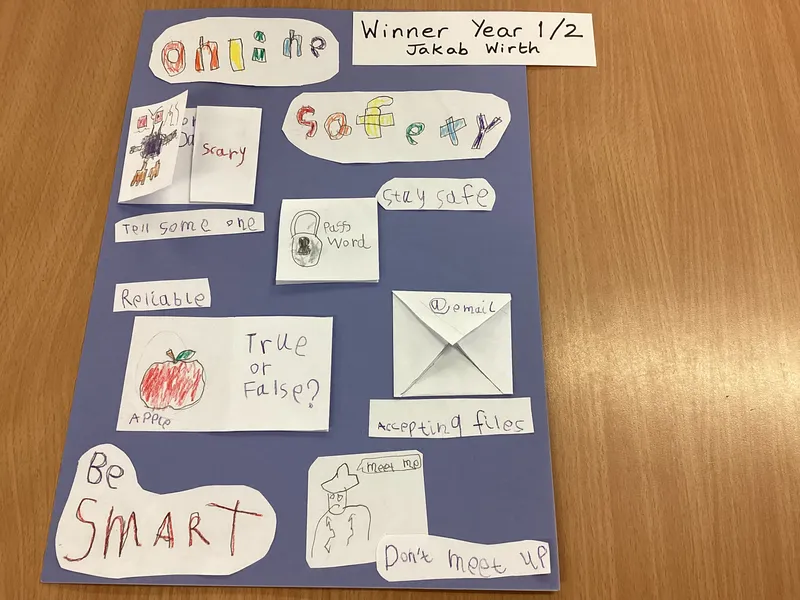 Online
Winner Year 1/2
Jakab Wirth
Safety
scary
Stay safe
Tell some one
Pass
Word
Reliable
@email
True
or
False?
Apple
Accepting files
Be
SMART
meet me
Don't meet up